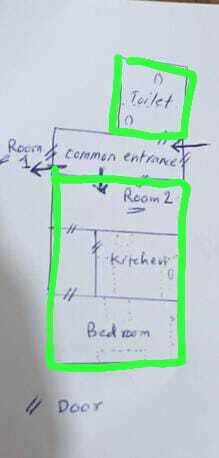 Toilet
Room
1
common entrance
Room 2
Kitchen
Bedroom
// Door